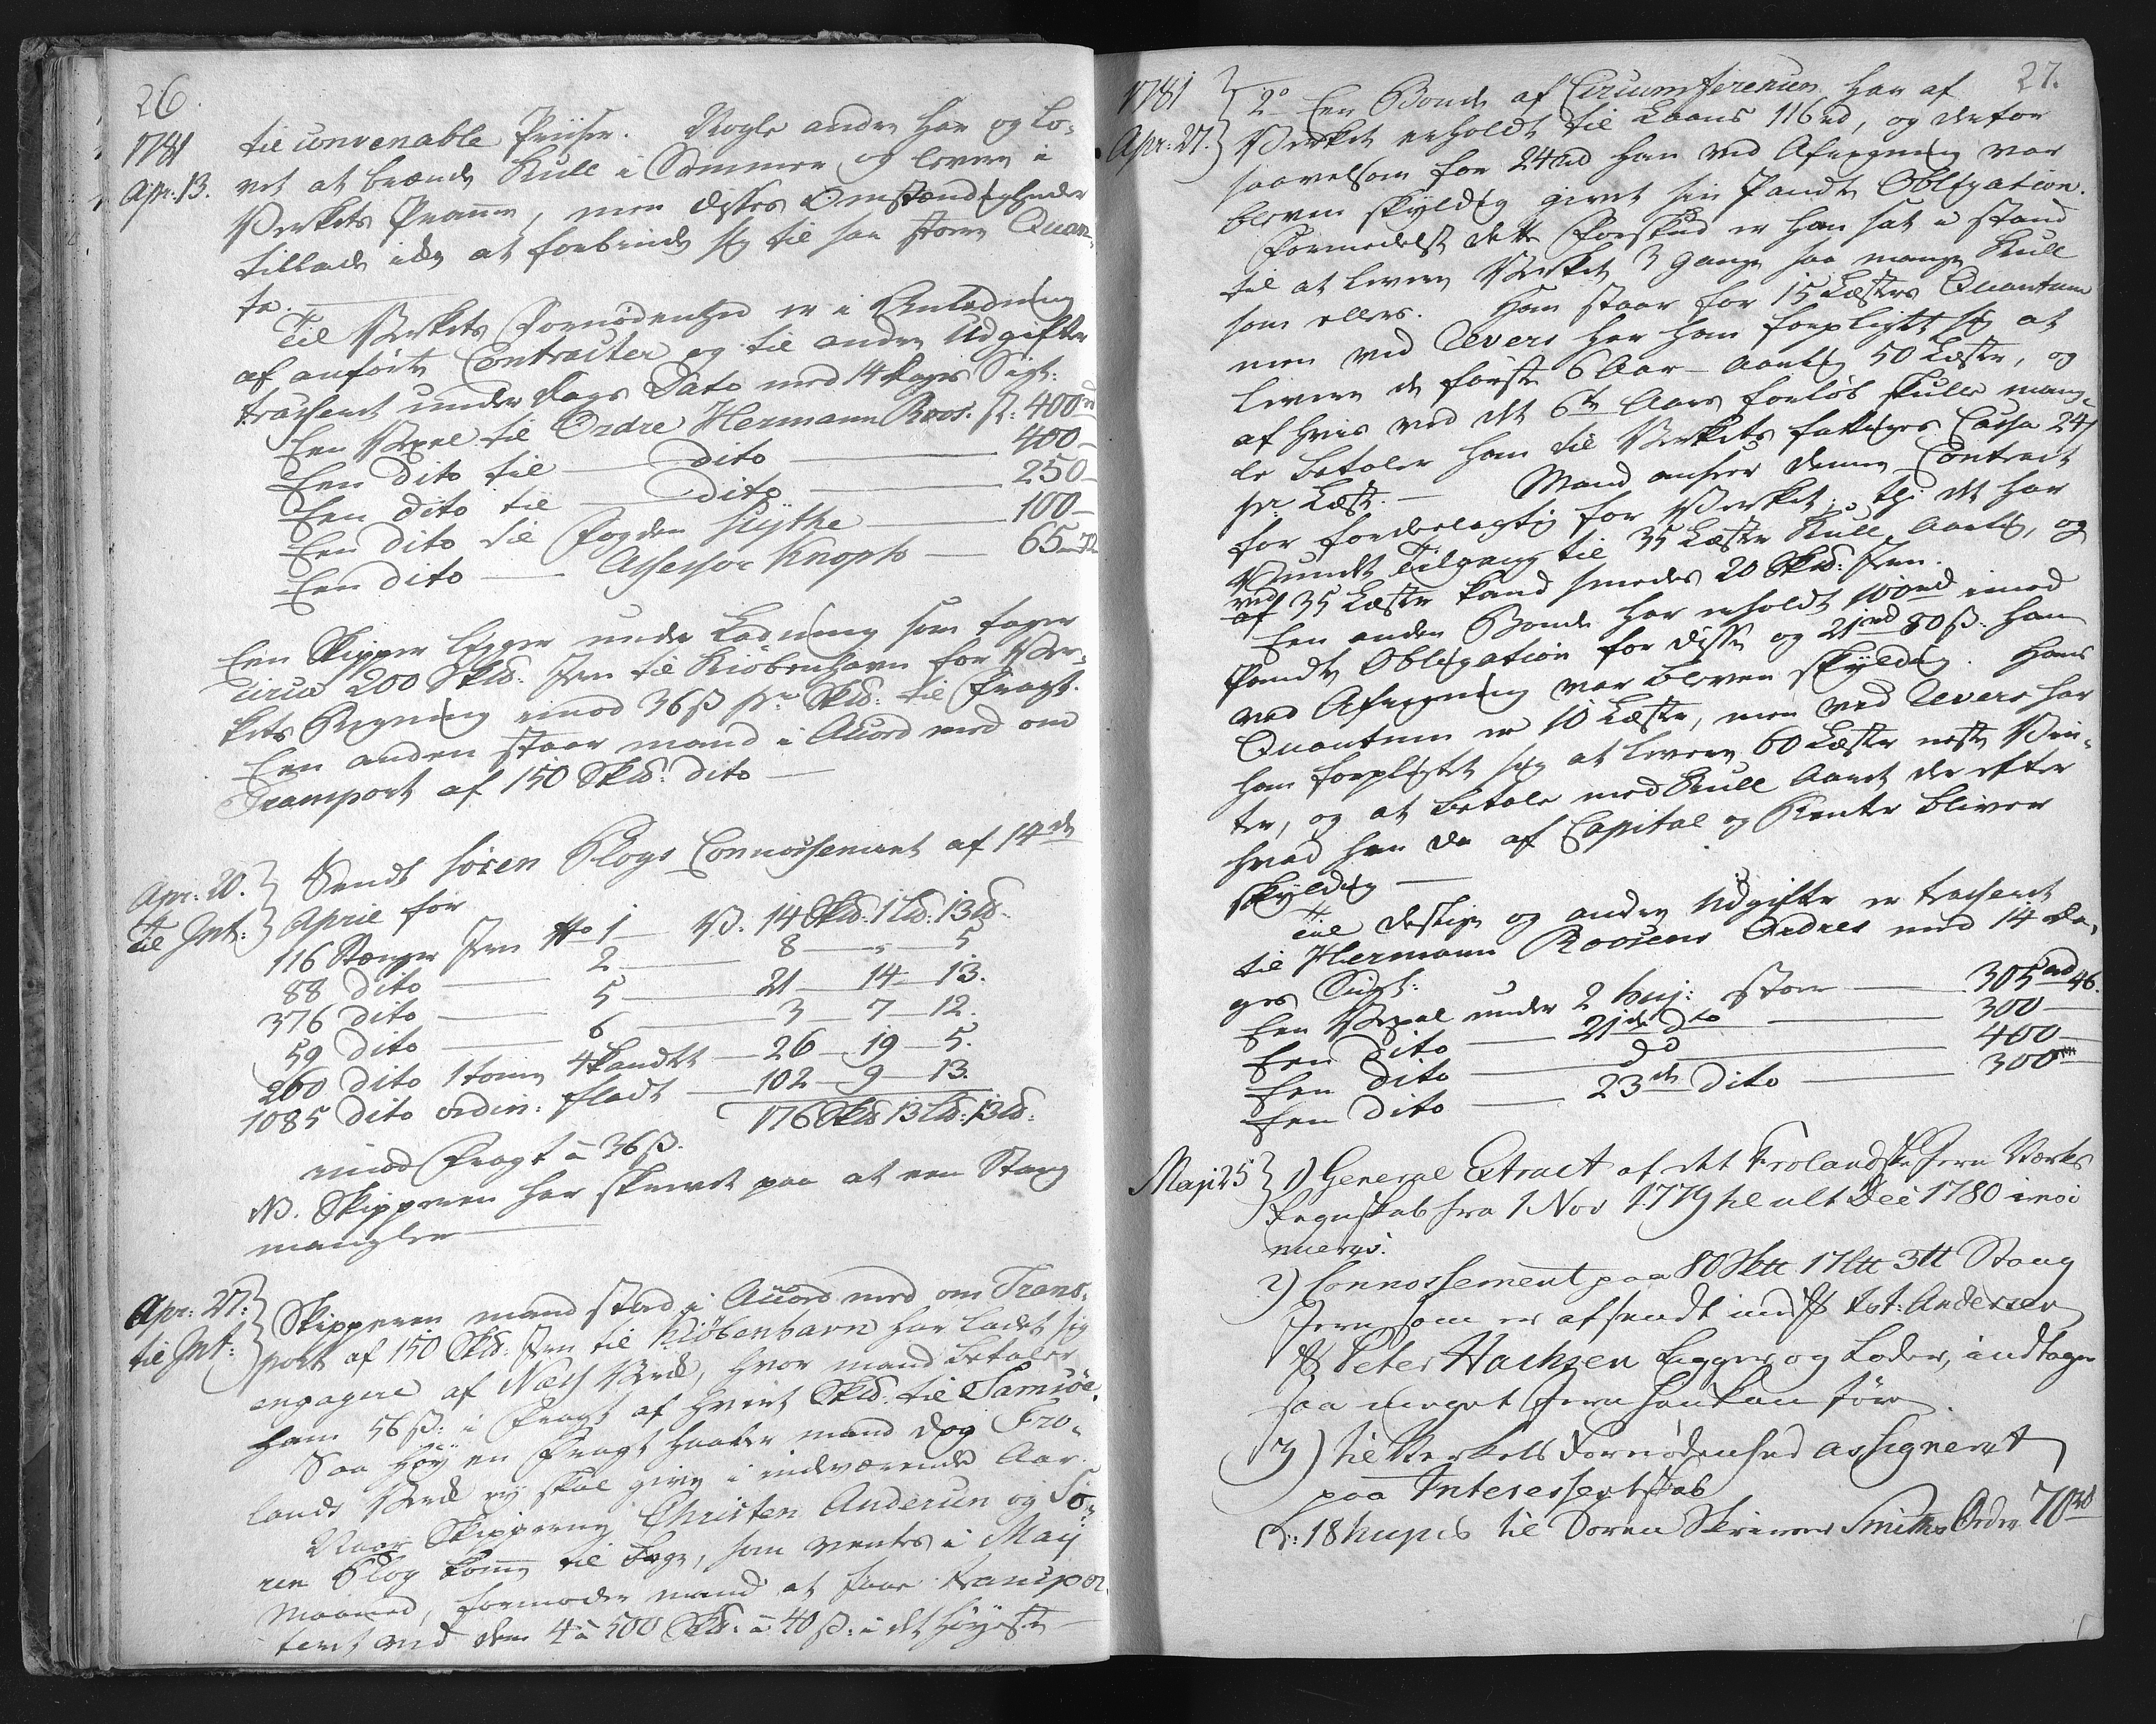 26.
1781
Apr: 13.
til convenable Priiser. Nogle andre har og lo-
vet at brænde Kull i Sommer og levere i
Verkets Pramme, men disses Omstændigheder
tillade ikke at forbinde sig til saa store Quan-
ta.
Til Verkets Fornødenhed er i Anledning
af anførte Contracter og til andre Udgifter
trasseret under dags Dato med 14 dages Sigt:
Een Vexel til Ordre Hermann Roos. st: 400 rd
Een dito til — dito — 400 —
Een dito til — dito — 250 —
Een dito til Fogden Hejthe — 100 —
Een dito — Assessor Knoph — 65 — 72
Een Skipper ligger under Ladning som tager
circa 200 Skd: Jern til Kiøbenhavn for Ver-
kets Regning imod 36 ß pr Skd: til Fragt.
Een anden staar mand i Accord med om
Transport af 150 Skd: dito —
Apr: 20.
Til Int:
Sendt Søren Plogs Connossement af 14de
April for
116 Stænger Jern No 1 — V. 14 Skd: 1 Ld: 13 lb.
88 dito — 2 — 8 — „ — 5
376 dito — 5 — 21 — 14 — 13.
59 dito — 6 — 3 — 7 — 12.
260 dito 1 tomme 4 kandtt — 26 — 19 — 5.
1085 dito ordin: fladt — 102 — 9 — 13.
176 Skd 13 Ld: 13 lb:
imod Fragt a 36 ß.
NB. Skipperen har skrevet paa at een Stang
mangler —
Apr: 27.
til Int:
Skipperen mand stod i Accord med om Trans-
port af 150 Skd: Jern til Kiøbenhavn har ladet sig
engagere af Næss Verk, hvor mand betaler
ham 56 ß: i Fragt af hvert Skd. til Samsøe.
Saa høy en Fragt haaber mand dog Fro-
lands Verk ey skal give i indværende Aar.
Naar Skipperne Christen Andersen og Sø-
ren Plog komme til bage, som ventes i Maij
Maaned, formoder mand at faae transpor-
teret med dem 4 a 500 Skd: a 40 ß: i det høyeste —
27.
1781
Apr: 27.
2o Een Bonde af Circumferencen har af
Verket erholdt til Laans 116 rd, og derfor
saavelsom for 24 rd han ved Afregning var
bleven skyldig givet sin Pandte Obligation.
Formedelst dette Forskud er han sat i stand
til at levere Verket 3 Gange saa mange Kull
som ellers. Han staar for 15 Læsters Quantum
men ved Revers har han forpligtet sig at
levere de første 6 Aar — aarlig 50 Læster, og
af hvis ved det 6te Aars forløb skulle mang-
le betaler han til Verkets fattiges Cassa 24 ß
pr. Læst. — Mand anseer denne Contract
for fordeelagtig for Verket; thi det har
vundet Tilgang til 35 Læster Kull Aarlig, og
ved
af 35 Læster kand smedes 20 Skd: Jern.
Een anden Bonde har erholdt 100 rd imod
Pandte Obligation for disse og 21 rd 80 ß. han
ved Afregning var bleven skyldig. Hans
Quantum er 10 Læster, men ved Revers har
han forpligtet sig at levere 60 Læster neste Vin-
ter, og at betale med Kull Aaret der efter
hvad han da af Capital og Rente bliver
skyldig —
Til destige og andre Udgifter er trasseret
til Hermann Roosens Ordres med 14 da-
ges Sigt:
Een Vexel under 2 huj: stor — 305 rd 46.
Een dito — 21de do — 300 —
Een dito — do — 400 —
Een dito — 23de dito — 300 —
Maji 25
1) General Extract af det Frolandske Jern Værks
Regnskab fra 1 Nov 1779 til ult Dec 1780
2) Connossement paa 80 Sktt 17 Ltt 3 tt Stang
Jern som er afsendt med Sk Tot: Andersen
Sk Peter Hachsen Ligger og Loder, indtager
saa meget Jern han kan føre.
3) til Verkets Fornødenhed assigneret
paa Interessentskab
d: 18 hujus til Søren Skriver Smiths Ordre 70 rd